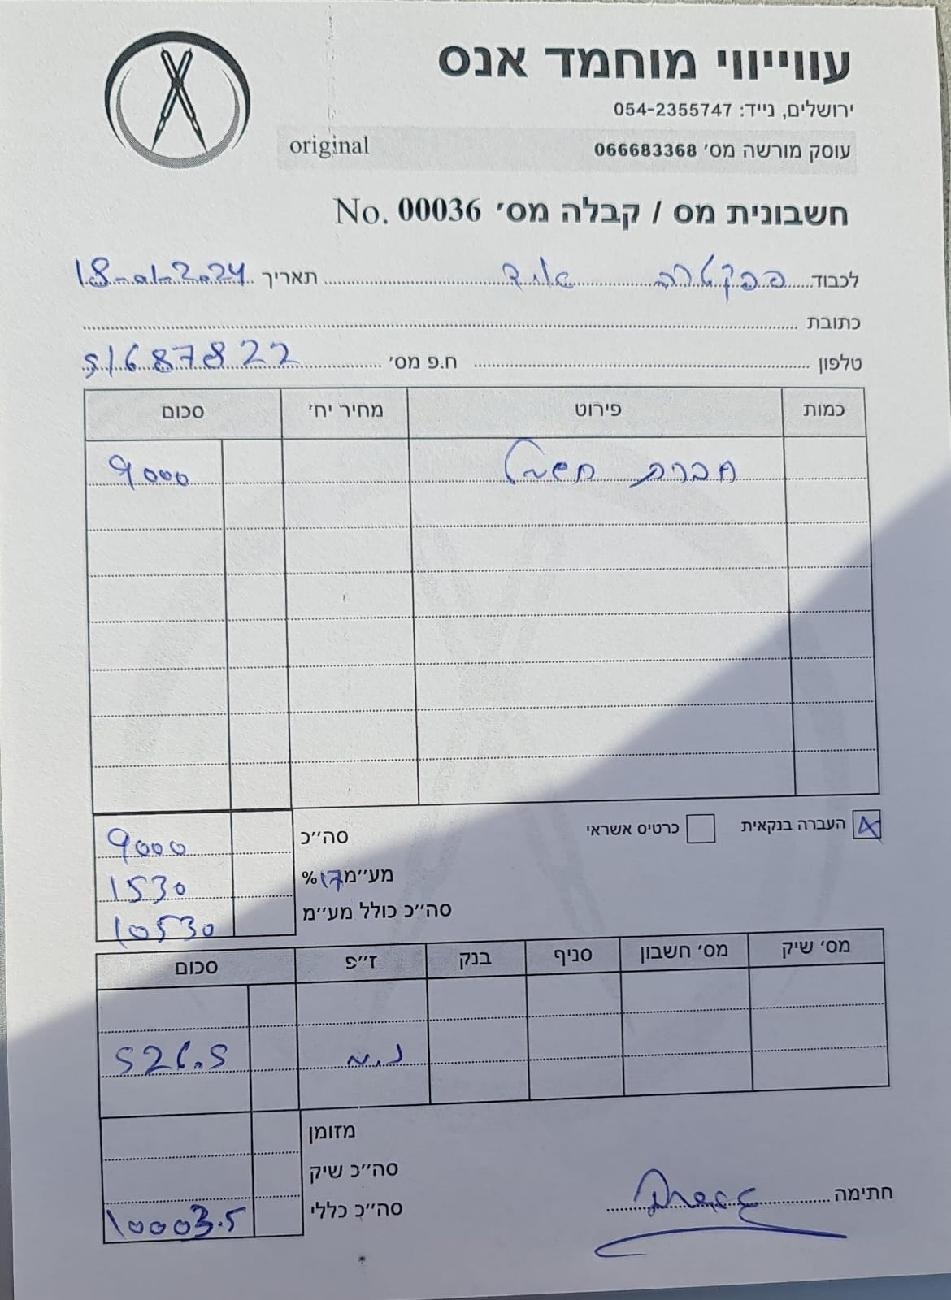 עווייווי מוחמד אנס
ירושלים, נייד: 054-2355747
עוסק מורשה מס׳ 066683368
original
חשבונית מס / קבלה מס׳ No. 00036
לכבוד תאריך 18-01-2024
כתובת
טלפון ח.פ מס׳ 51687822
כמות פירוט מחיר יח׳ סכום
חברת חשמל 9000
העברה בנקאית כרטיס אשראי
סה״כ 9000
מע״מ 17% 1530
סה״כ כולל מע״מ 10530
מס׳ שיק מס׳ חשבון סניף בנק ז״פ סכום
נ.מ 526.5
מזומן
סה״כ שיק
סה״כ כללי 10003.5
חתימה